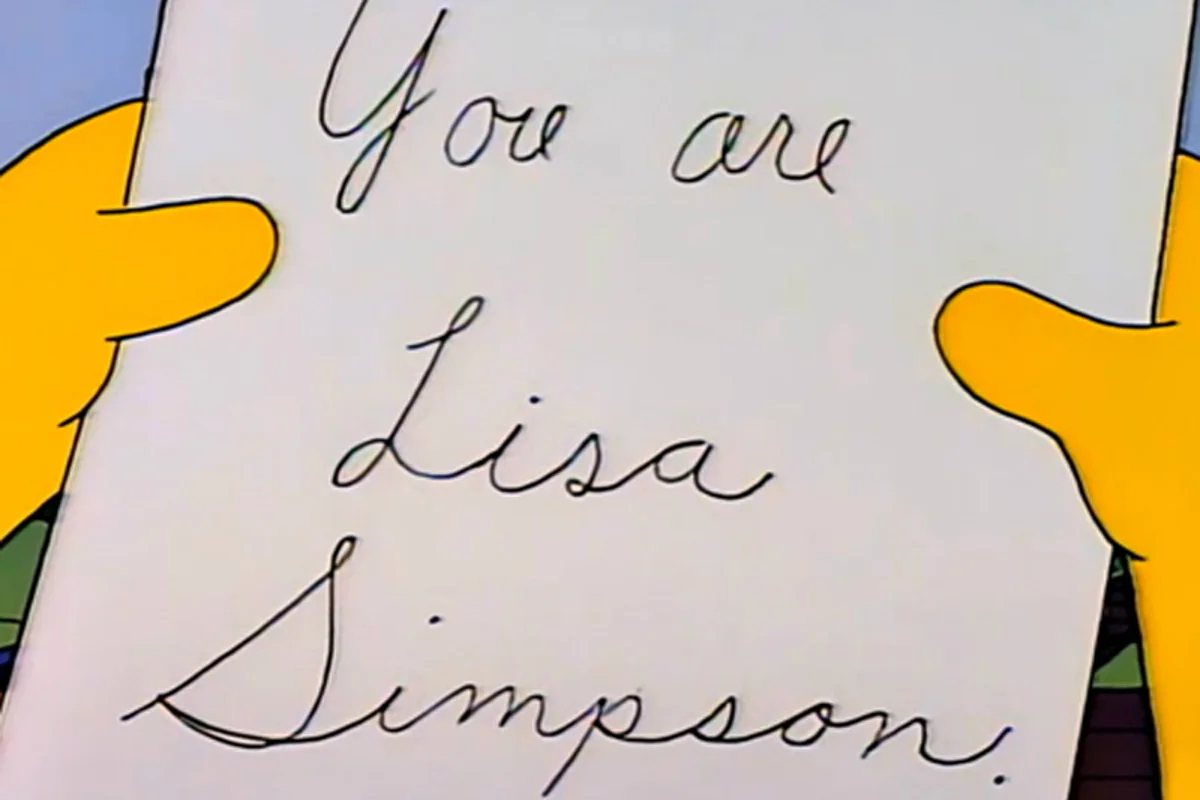 You are
Lisa
Simpson.